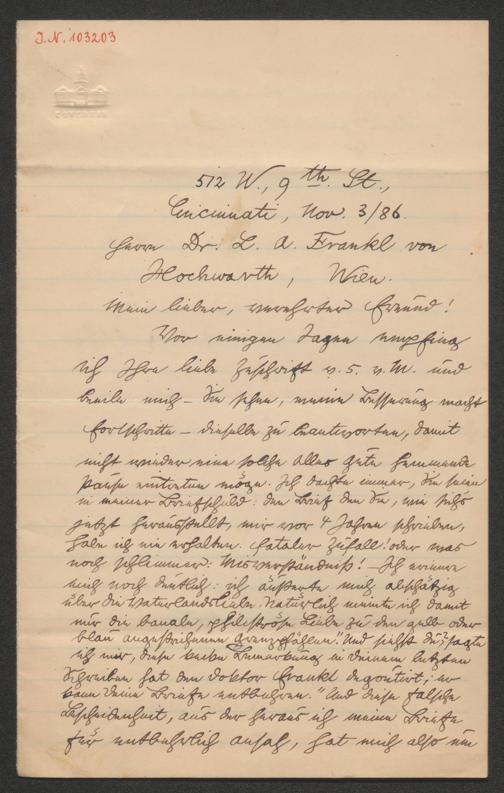 J.N. 103203
CONGRESS
512 W., 9th. St.,
Cincinnati, Nov. 3/86.
Herrn Dr. L. A. Frankl von
Hochwarth, Wien.
Mein lieber, verehrter Freund!
Vor einigen Tagen empfing
ich Ihre liebe Zuschrift v. 5. v. M. und
beeile mich – Sie sehen, meine Besserung macht
Fortschritte – dieselbe zu beantworten, damit
nicht wieder eine solche alles Gute hemmende
Pause eintreten möge. Ich dachte immer, Sie seien
in meiner Briefschuld: den Brief den Sie, wie sich's
jetzt herausstellt, mir vor 4 Jahren schrieben,
habe ich nie erhalten. Fataler Zufall! oder was
noch schlimmer: Misverständniß! – Ich erinnere
mich noch deutlich: ich äußerte mich abschätzig
über die Vaterlandsliebe. Natürlich meinte ich damit
nur die banale, philiströse Liebe zu den gelb oder
blau angestrichenen Grenzpfählen. "Und siehst du?, sagte
ich mir, diese kecke Bemerkung in deinem letzten
Schreiben hat den Doktor Frankl degoutirt; er
kann deine Briefe entbehren." Und diese falsche
Bescheidenheit, aus der heraus ich meine Briefe
für entbehrlich ansah, hat mich also um